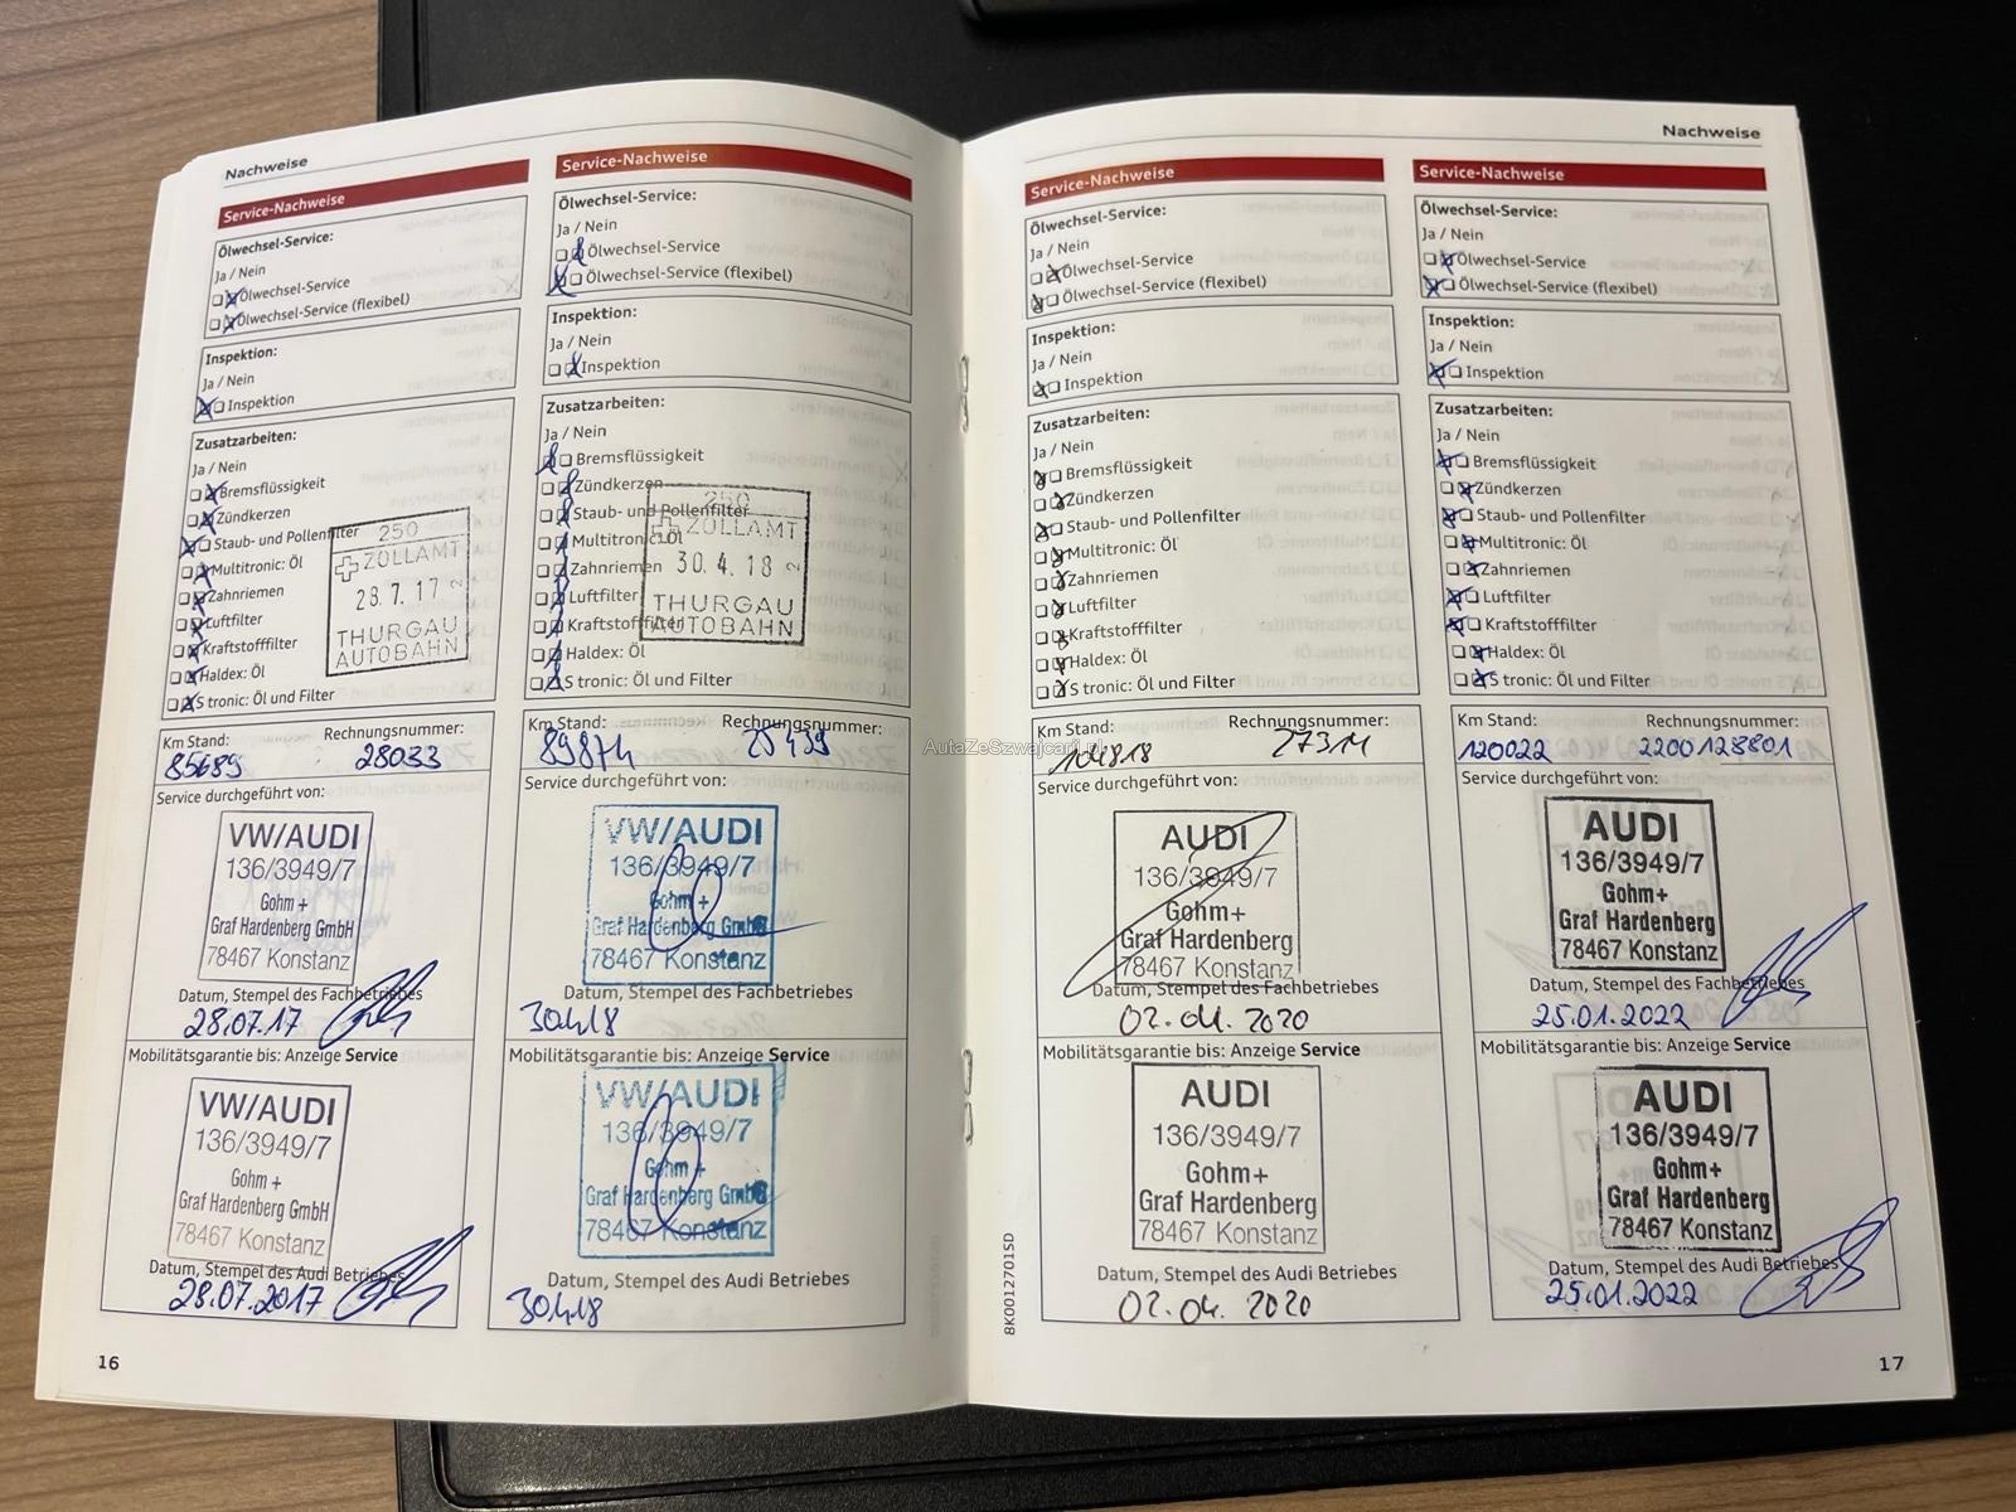 Nachweise
Service-Nachweise
Ölwechsel-Service:
Ja / Nein
Ölwechsel-Service
Ölwechsel-Service (flexibel)
Inspektion:
Ja / Nein
Inspektion
Zusatzarbeiten:
Ja / Nein
Bremsflüssigkeit
Zündkerzen
Staub- und Pollenfilter
Multitronic: Öl
Zahnriemen
Luftfilter
Kraftstofffilter
Haldex: Öl
S tronic: Öl und Filter
250
ZOLLAMT
28.7.17 2
THURGAU
AUTOBAHN
Km Stand: Rechnungsnummer:
85689 28033
Service durchgeführt von:
VW/AUDI
136/3949/7
Gohm +
Graf Hardenberg GmbH
78467 Konstanz
Datum, Stempel des Fachbetriebes
28.07.17
Mobilitätsgarantie bis: Anzeige Service
VW/AUDI
136/3949/7
Gohm +
Graf Hardenberg GmbH
78467 Konstanz
Datum, Stempel des Audi Betriebes
28.07.2017
16
Service-Nachweise
Ölwechsel-Service:
Ja / Nein
Ölwechsel-Service
Ölwechsel-Service (flexibel)
Inspektion:
Ja / Nein
Inspektion
Zusatzarbeiten:
Ja / Nein
Bremsflüssigkeit
Zündkerzen
Staub- und Pollenfilter
Multitronic: Öl
Zahnriemen
Luftfilter
Kraftstofffilter
Haldex: Öl
S tronic: Öl und Filter
250
ZOLLAMT
30.4.18 2
THURGAU
AUTOBAHN
Km Stand: Rechnungsnummer:
89874 25439
Service durchgeführt von:
VW/AUDI
136/3949/7
Gohm +
Graf Hardenberg GmbH
78467 Konstanz
Datum, Stempel des Fachbetriebes
30.4.18
Mobilitätsgarantie bis: Anzeige Service
VW/AUDI
136/3949/7
Gohm +
Graf Hardenberg GmbH
78467 Konstanz
Datum, Stempel des Audi Betriebes
30.4.18
Nachweise
Service-Nachweise
Ölwechsel-Service:
Ja / Nein
Ölwechsel-Service
Ölwechsel-Service (flexibel)
Inspektion:
Ja / Nein
Inspektion
Zusatzarbeiten:
Ja / Nein
Bremsflüssigkeit
Zündkerzen
Staub- und Pollenfilter
Multitronic: Öl
Zahnriemen
Luftfilter
Kraftstofffilter
Haldex: Öl
S tronic: Öl und Filter
AutaZeSzwajcarii.pl
Km Stand: Rechnungsnummer:
104818 27311
Service durchgeführt von:
AUDI
136/3949/7
Gohm+
Graf Hardenberg
78467 Konstanz
Datum, Stempel des Fachbetriebes
02.04.2020
Mobilitätsgarantie bis: Anzeige Service
AUDI
136/3949/7
Gohm+
Graf Hardenberg
78467 Konstanz
Datum, Stempel des Audi Betriebes
02.04.2020
8K0012701SD
Service-Nachweise
Ölwechsel-Service:
Ja / Nein
Ölwechsel-Service
Ölwechsel-Service (flexibel)
Inspektion:
Ja / Nein
Inspektion
Zusatzarbeiten:
Ja / Nein
Bremsflüssigkeit
Zündkerzen
Staub- und Pollenfilter
Multitronic: Öl
Zahnriemen
Luftfilter
Kraftstofffilter
Haldex: Öl
S tronic: Öl und Filter
Km Stand: Rechnungsnummer:
120022 2200128801
Service durchgeführt von:
AUDI
136/3949/7
Gohm+
Graf Hardenberg
78467 Konstanz
Datum, Stempel des Fachbetriebes
25.01.2022
Mobilitätsgarantie bis: Anzeige Service
AUDI
136/3949/7
Gohm+
Graf Hardenberg
78467 Konstanz
Datum, Stempel des Audi Betriebes
25.01.2022
17